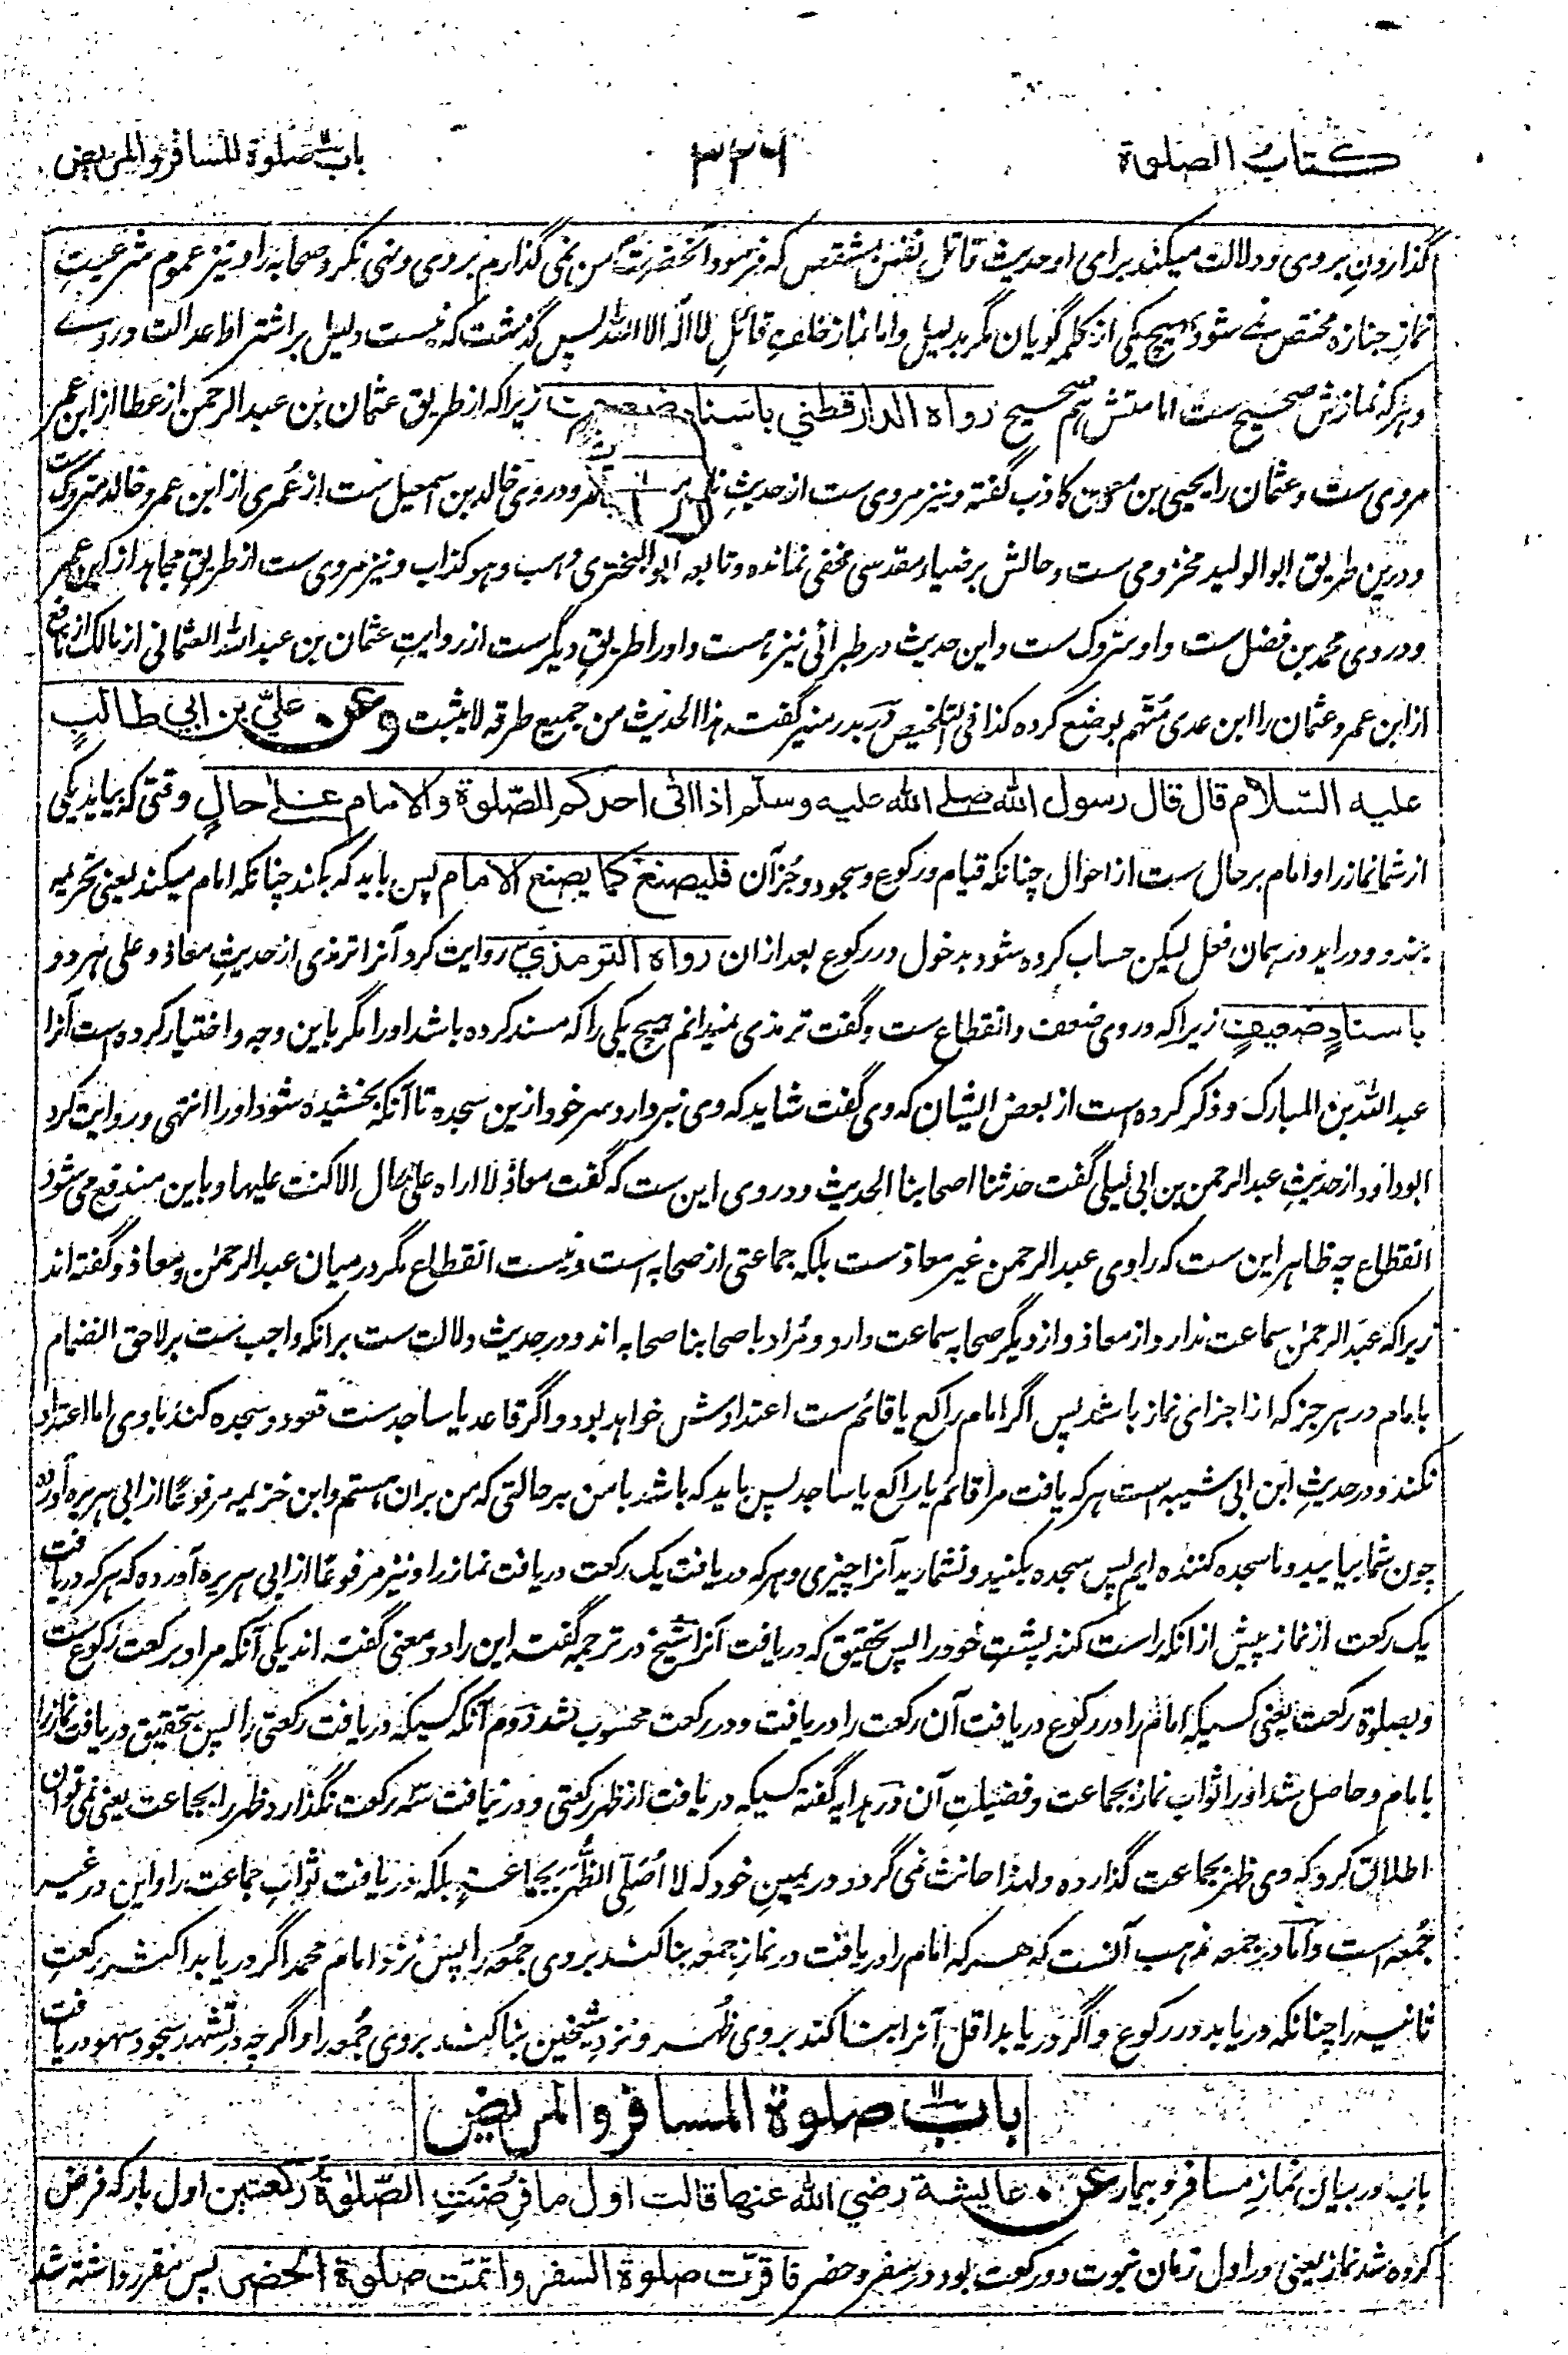 كتاب الصلوة
٣٢٦
باب صلوة المسافر والمريض
گذاردن بروی و دلالت میکند برای او حدیث قاتل نفس بمشقص که فرمود آنحضرت من نمی گذارم بروی و نهی نکرد صحابه را و نیز عموم شرعیتِ
نماز جنازه مختص نے شود بهیچ یکی از کلمه گویان مگر بدلیل و اما نماز خلفِ قائلِ لا اله الا الله پس گذشت که نیست دلیل بر اشتراط عدالت در وے
و هر که نمازش صحیح ست امامتش هم صحیح رواه الدارقطني باسناد ضعيف زیرا که از طریق عثمان بن عبد الرحمن از عطا از ابن عمر
مروی ست و عثمان را یحیی بن معین کاذب گفته و نیز مروی ست از حدیثِ نافع و در وی خالد بن اسمعیل ست از عُمری از ابن عمر و خالد متروک ست
و درین طریق ابو الولید مخزومی ست و حالش بر ضیاء مقدسی مخفی نمانده و تابعه ابو البختری وهب و هو کذاب و نیز مروی ست از طریقِ مجاهد از ابن عمر
و در وی محمد بن فضل ست و او متروک ست و این حدیث در طبرانی نیز هست و او را طریقِ دیگر ست از روایتِ عثمان بن عبد الله العثمانی از مالک از نافع
از ابن عمر و عثمان را ابن عدی مُتّهم بوضع کرده کذا فی التلخیص و در بدر منیر گفت هذا الحدیث من جمیع طرقه لا یثبت وعن عليّ بن ابي طالبٍ
عليه السّلام قال قال رسول الله صلے الله عليه وسلم اذا اتى احدكم الصّلوة والامام علے حالٍ وقتی که بیاید یکی
از شما نماز را و امام بر حال ست از احوال چنانکه قیام و رکوع و سجود و جُز آن فليصنع كما يصنع الامام پس باید که بکند چنانکه امام میکند یعنی تحریمه
ببندد و در اید در همان فعل لیکن حساب کرده شود بدخول در رکوع بعد ازان رواه الترمذيّ روایت کرد آنرا ترمذی از حدیثِ معاذ و علی هر دو
باسنادٍ ضعيفٍ زیرا که در وی ضعف و انقطاع ست و گفت ترمذی نمیدانم هیچ یکی را که مسند کرده باشد او را مگر باین وجه و اختیار کرده است آنرا
عبد الله بن المبارک و ذکر کرده است از بعض ایشان که وی گفت شاید که وی نبردارد سر خود ازین سجده تا آنکه بخشیده شود او را انتهی و روایت کرد
ابوداؤد از حدیثِ عبد الرحمن بن ابی لیلی گفت حدثنا اصحابنا الحدیث و در وی این ست که گفت معاذ لا اراه علی حال الا کنت علیها و باین مندفع می شود
انقطاع چه ظاهر این ست که راوی عبد الرحمن غیر معاذ ست بلکه جماعتی از صحابه است و نیست انقطاع مگر در میان عبد الرحمٰن و معاذ و گفته اند
زیرا که عبد الرحمٰن سماعت ندارد از معاذ و از دیگر صحابه سماعت دارد و مُراد باصحابنا صحابه اند و در حدیث دلالت ست برانکه واجب ست بر لاحق انضمام
بامام در هر جز که از اجزای نماز باشد پس اگر امام راکع یا قائم ست اعتدادش خواهد بود و اگر قاعد یا ساجد ست قعود و سجده کند با وی اما اعتداد
نکند و در حدیثِ ابن ابی شیبه است هر که یافت مرا قائم یا راکع یا ساجد پس باید که باشد با من بر حالتی که من بران هستم و ابن خزیمه مرفوعًا از ابی هریره آورده
چون شما بیایید و ما سجده کننده ایم پس سجده بکنید و نشمارید آنرا چیزی و هر که دریافت یک رکعت دریافت نماز را و نیز مرفوعًا از ابی هریره آورده که هر که دریافت
یک رکعت از نماز پیش از انکه راست کند پشتِ خود را پس بتحقیق که دریافت آنرا شیخ در ترجمه گفت این را دو معنی گفته اند یکی آنکه مراد برکعت رکوع ست
و بصلوة رکعت یعنی کسیکه امام را در رکوع دریافت آن رکعت را دریافت و در رکعت محسوب شد دوم آنکه کسیکه دریافت رکعتی را پس بتحقیق دریافت نماز را
با امام و حاصل شد او را ثواب نماز بجماعت و فضیلتِ آن و در هدایه گفته کسیکه دریافت از ظهر رکعتی و در نیافت سه رکعت نگذارد ظهر را بجماعت یعنی نمی توان
اطلاق کرد که وی ظهر بجماعت گذارده و لهذا حانث نمی گردد در یمینِ خود که لا اُصَلّی الظُّهرَ بجماعةٍ بلکه دریافت ثوابِ جماعت را و این در غیر
جُمعه است و اما در جمعه مذهب آنست که هر که امام را دریافت در نمازِ جمعه بنا کند بروی جمعه را پس نزد امام محمد اگر دریابد اکثر رکعتِ
ثانیه را چنانکه دریابد در رکوع و اگر دریابد اقل آنرا بنا کند بروی ظهر و نزدِ شیخین بنا کند بروی جُمعه را و اگرچه در تشهد سجود سهو دریافت
باب صلوة المسافر والمريض
باب در بیان نمازِ مسافر و بیمار عن عايشة رضي الله عنها قالت اول ما فُرِضَتِ الصّلوةُ ركعتين اول بار که فرض
کرده شد نماز یعنی در اول زمان نبوت دو رکعت بود در سفر و حضر فاقرّت صلوة السفر واتمّت صلوة الحضر پس مقرر داشته شد